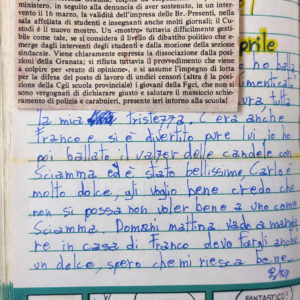 ministero, in seguito alla denuncia di aver sostenuto, in un inter-
vento il 16 marzo, la validità dell'impresa delle Br. Presenti, nella
sala affollata di studenti e insegnanti anche molti giornali; il Cu-
stodi è il nuovo mostro. Un «mostro» tuttavia difficilmente gesti-
bile come tale, se si considera il livello di dibattito politico che e-
merge dagli interventi degli studenti e dalla mozione della sezione
sindacale. Viene chiaramente espressa la dissociazione dalla posi-
zioni della Granata; si rifiuta tuttavia il provvedimento che viene
a colpire per «reato di opinione», e si assume l'impegno di lotta
per la difesa del posto di lavoro di undici censori (altra è la posi-
zione della Cgil scuola provinciale i giovani della Fgci, che non si
sono vergognati di dichiarare giusto e salutare il massiccio schie-
ramento di polizia e carabinieri, presente ieri intorno alla scuola)
aprile
ho
tutta
la mia tristezza. C'era anche
Franco e si è divertito pure lui, io ho
poi ballato il valzer delle candele con
Sciamma ed è stato bellissimo, Carlo è
molto dolce, gli voglio bene credo che
non si possa non voler bene a uno come
Sciamma. Domani mattina vado a mangia
re in casa di Franco devo fargli anche
un dolce, spero che mi riesca bene
FANTASTICO!